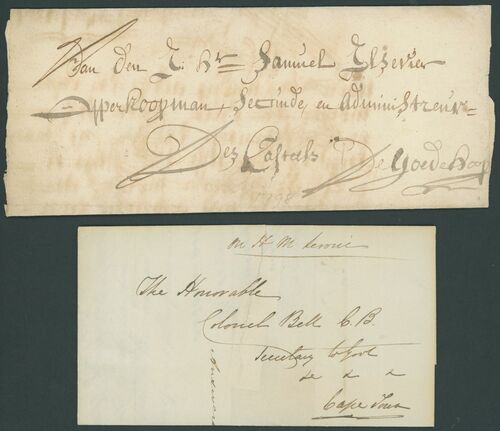 Aan den E: Hr Samuel Elsevier
Opperkoopman, Secunde, en Administreur
Des Casteels De Goede Hoop
1798
On H M Service
The Honorable
Colonel Bell C.B.
Secretary to Govt
&c &c &c
Cape Town